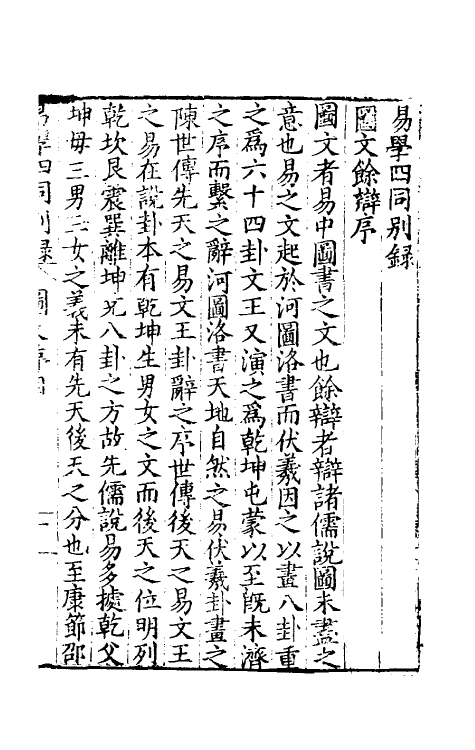 易學四同別錄
圖文餘辯序
圖文者易中圖書之文也餘辯者辯諸儒說圖未盡之
意也易之文起於河圖洛書而伏羲因之以畫八卦重
之爲六十四卦文王又演之爲乾坤屯蒙以至旣未濟
之序而繫之辭河圖洛書天地自然之易伏羲卦畫之
陳世傳先天之易文王卦辭之序世傳後天之易文王
之易在說卦本有乾坤生男女之文而後天之位明列
乾坎艮震巽離坤兌八卦之方故先儒說易多據乾父
坤母三男三女之義未有先天後天之分也至康節邵
易學四同別錄 圖文序 一